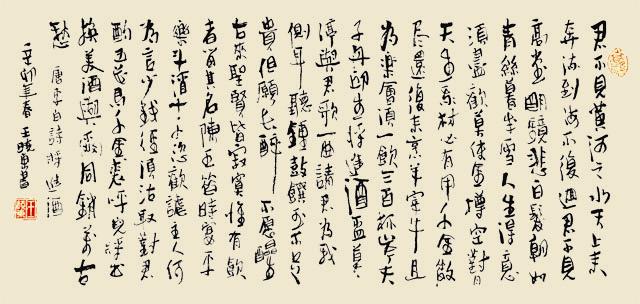 君不見黃河之水天上来
奔流到海不復迴君不見
高堂明鏡悲白髮朝如
青絲暮成雪人生得意
須盡歡莫使金樽空對月
天生我材必有用千金散
尽還復来烹羊宰牛且
為樂會須一飲三百杯岑夫
子丹邱生将進酒盃莫
停與君歌一曲請君為我
側耳聽鍾鼓饌玉不足
貴但願長醉不愿醒
古来聖賢皆寂寞惟有飲
者留其名陳王昔時宴平
樂斗酒十千恣歡謔主人何
為言少錢徑須沽取對君
酌五花馬千金裘呼兒将出
換美酒與爾同銷萬古
愁
唐李白詩将進酒
辛卯年春王曉東書